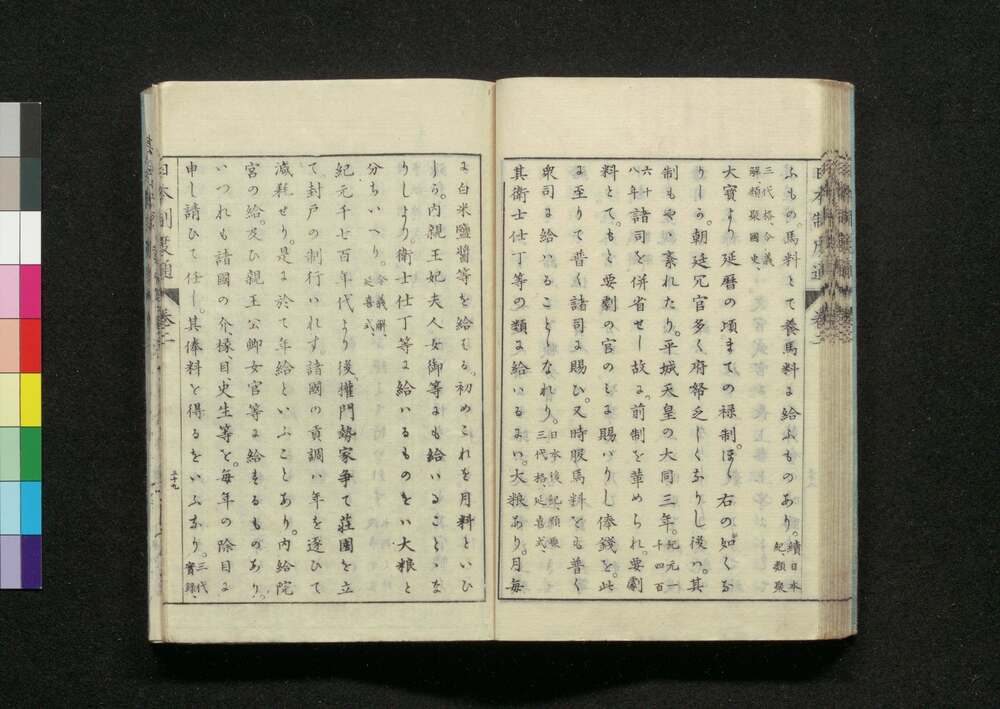 ふもの。馬料とて養馬料に給ふものあり。續日本紀、類聚
三代格、令義解、類聚國史、
大寳より延暦の頃までの禄制。ほゞ右の如くな
りしが。朝廷冗官多く府帑乏しくなりし後ハ。其
制もやゝ紊れたり。平城天皇の大同三年。紀元一千四百
六十八年諸司を併省せし故に。前制を革められ。要劇
料とて。もと要劇の官のミに賜ハりし俸錢を。此
に至りて普く諸司に賜ひ。又時服馬料をも普く
衆司に給いることゝなれり。日本後紀、類聚三代格、延喜式、
其衛士仕丁等の類に給いるにハ。大粮あり。月毎
に白米鹽醬等を給せる。初めこれを月料といひ
しが。内親王妃夫人女御等にも給いることゝな
りしより。衛士仕丁等に給いるものをバ大粮と
分ちいへり。令義解、延喜式、
紀元千七百年代より後。權門勢家争て莊園を立
て封戸の制行ハれず諸國の貢調ハ年を逐ひて
減耗せり。是に於て年給といふことあり。内給院
宮の給。及ひ親王公卿女官等に給せるものあり。
いつれも諸國の介、掾、目、史生等を。毎年の除目に
申し請ひて任し。其俸料を得るをいふなり。三代實録、
日本制度通
卷二
三十九
日本制度通